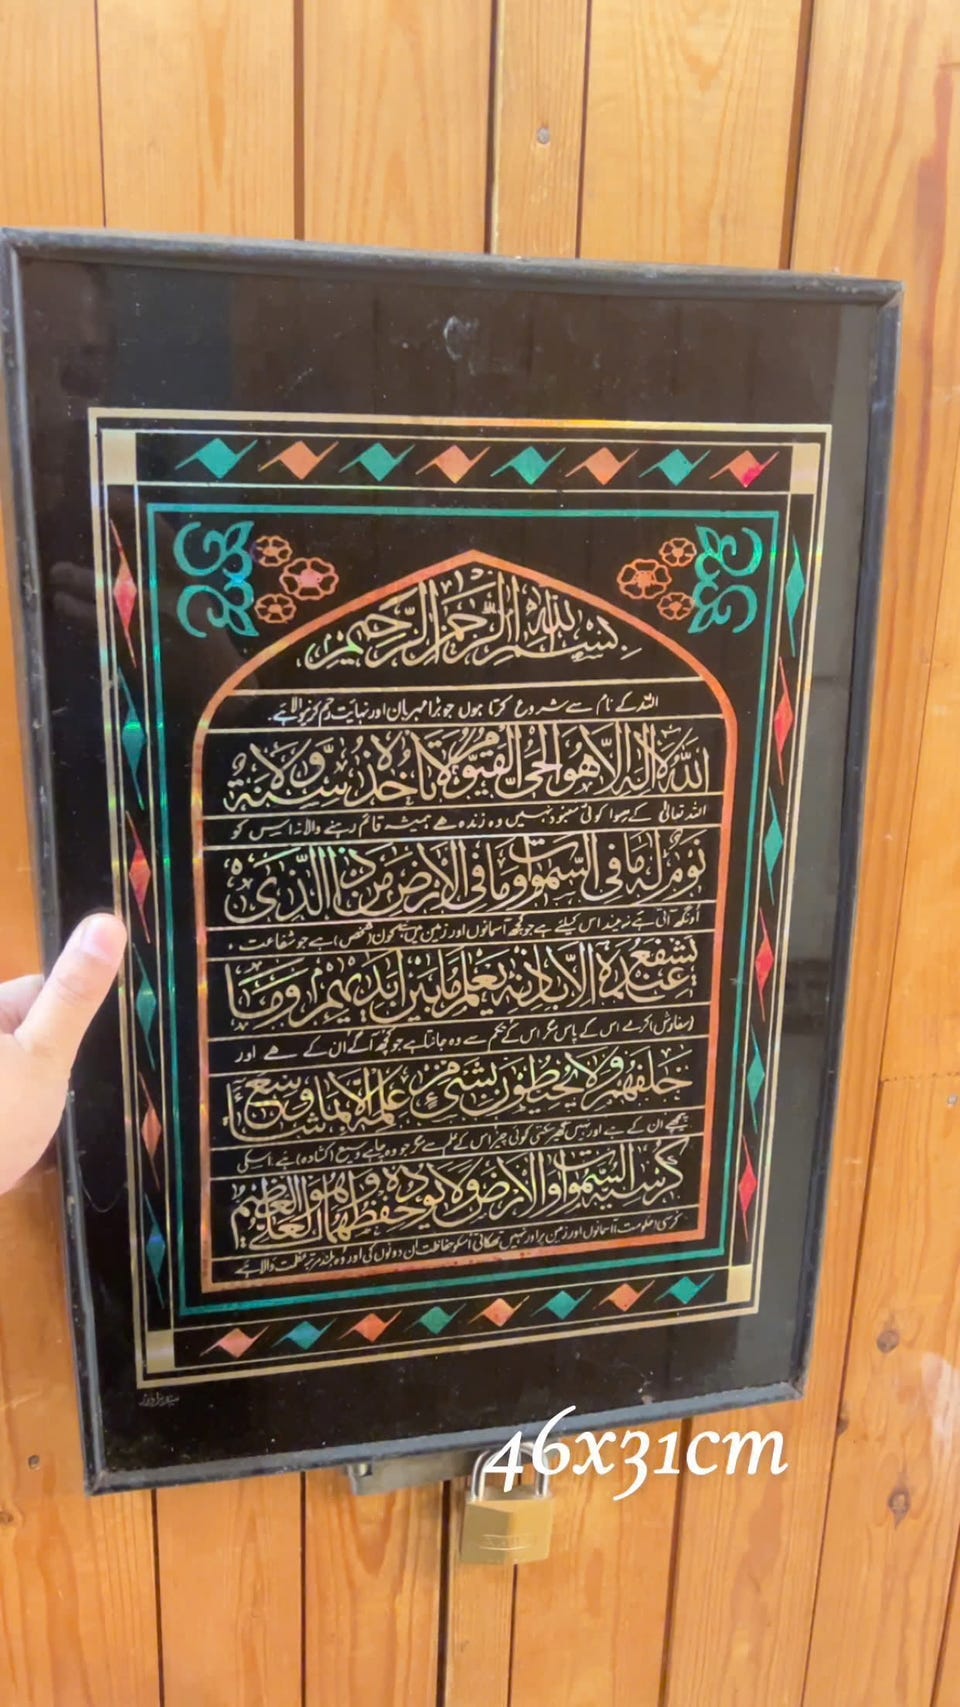 بِسْمِ اللهِ الرَّحْمٰنِ الرَّحِيْمِ
اللہ کے نام سے شروع کرتا ہوں جو بڑا مہربان اور نہایت رحم کرنیوالا ہے۔
اَللهُ لَا اِلٰهَ اِلَّا هُوَ الْحَىُّ الْقَيُّوْمُ لَا تَاْخُذُهٗ سِنَةٌ وَّلَا
اللہ تعالیٰ کے سوا کوئی معبود نہیں وہ زندہ ھے ہمیشہ قائم رہنے والا نہ اس کو
نَوْمٌ لَهٗ مَا فِى السَّمٰوٰتِ وَمَا فِى الْاَرْضِ مَنْ ذَا الَّذِىْ
اونگھ آتی ہے نہ نیند اس کیلئے ہے جو کچھ آسمانوں اور زمین میں ہے کون (شخص) ہے جو شفاعت
يَشْفَعُ عِنْدَهٗ اِلَّا بِاِذْنِهٖ يَعْلَمُ مَا بَيْنَ اَيْدِيْهِمْ وَمَا
(سفارش) کرے اس کے پاس مگر اس کے حکم سے وہ جانتا ہے جو کچھ آگے ان کے ھے اور
خَلْفَهُمْ وَلَا يُحِيْطُوْنَ بِشَىْءٍ مِّنْ عِلْمِهٖ اِلَّا بِمَا شَاءَ وَسِعَ
پیچھے ان کے ہے اور نہیں گھیر سکتی کوئی چیز اس کے علم سے مگر جو وہ چاہے وسیع (کشادہ) ہے اسکی
كُرْسِيُّهُ السَّمٰوٰتِ وَالْاَرْضَ وَلَا يَـُٔوْدُهٗ حِفْظُهُمَا وَهُوَ الْعَلِىُّ الْعَظِيْمُ
کرسی (حکومت) آسمانوں اور زمین پر اور نہیں تھکاتی اسکو حفاظت ان دونوں کی اور وہ بلند مرتبہ عظمت والا ہے
46x31cm